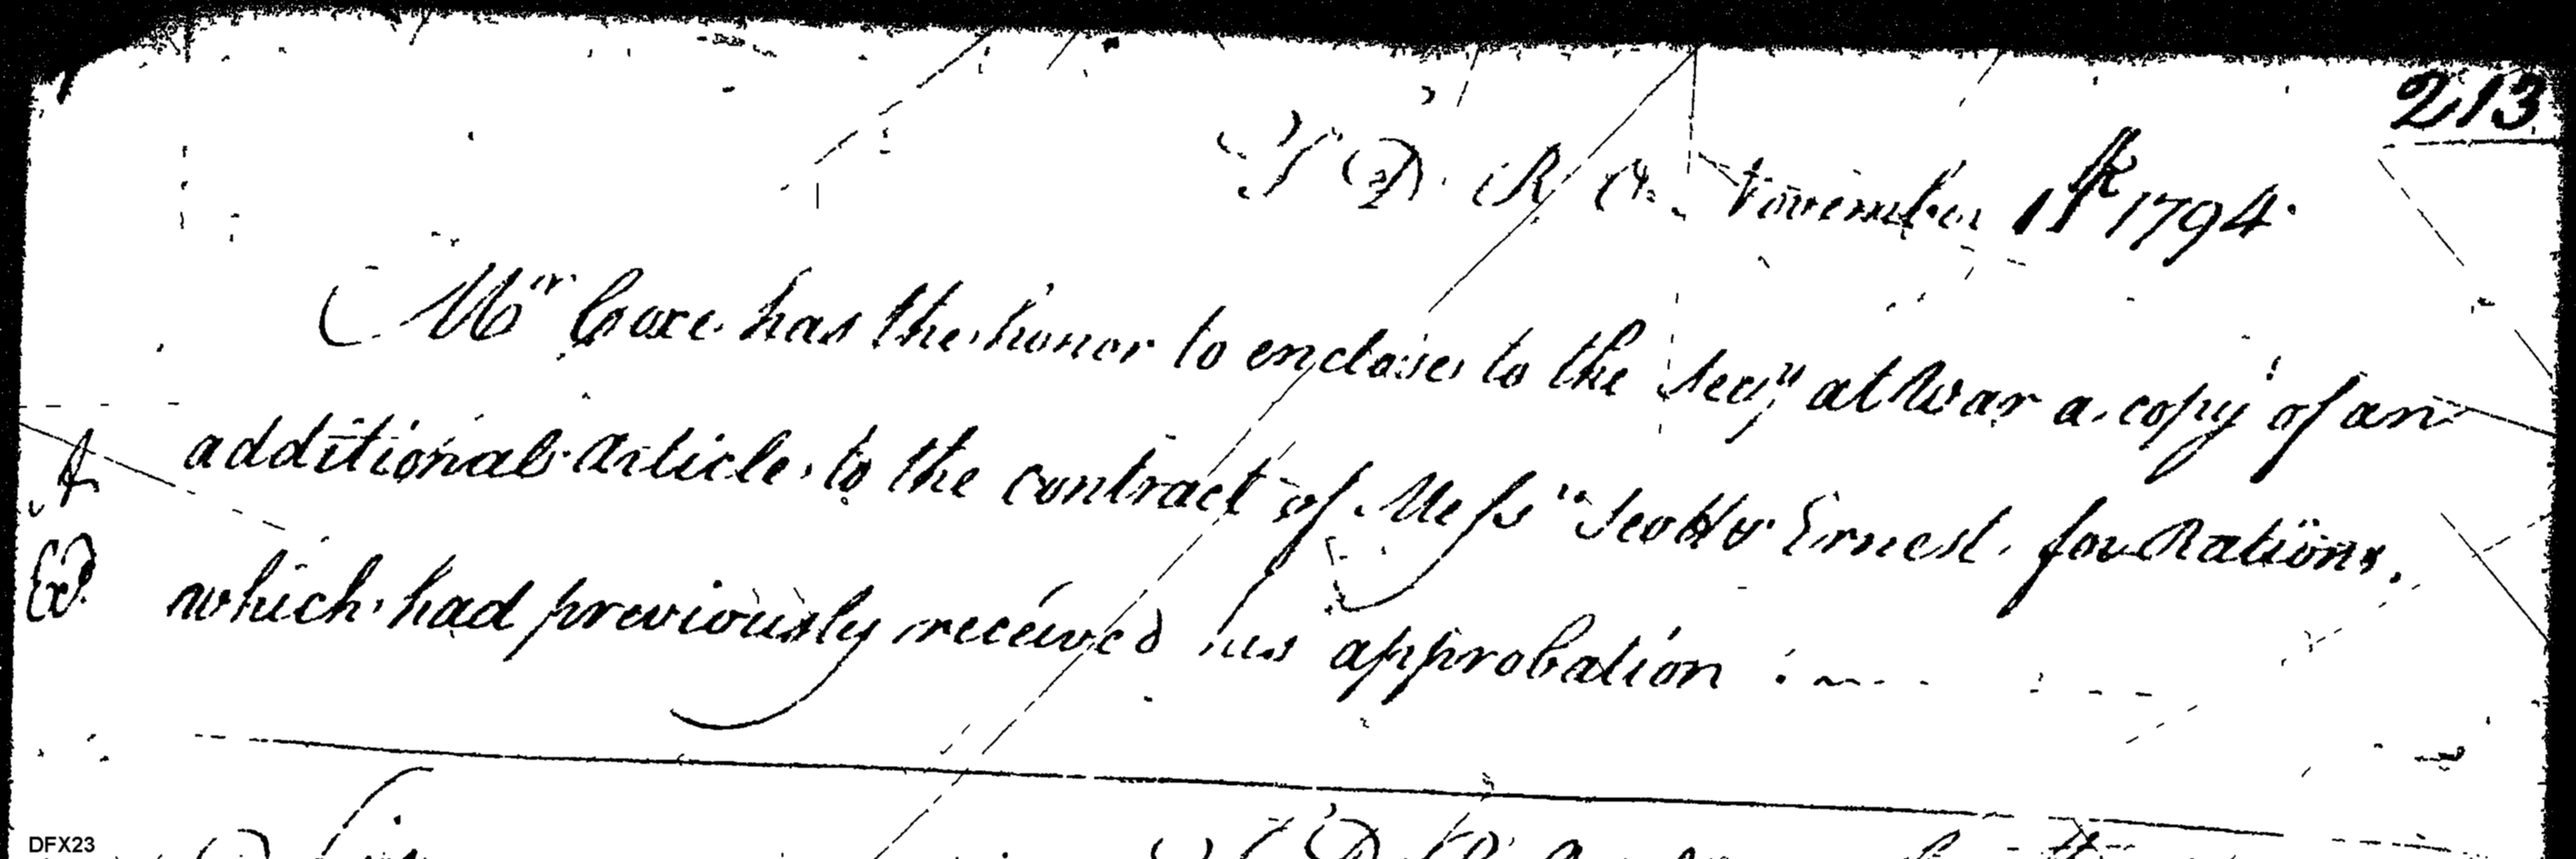 213
T D. R O. November 11th 1794.
Mr Coxe has the honor to enclose to the Secy at War a copy of an
additional Article to the contract of Messrs Scott & Ernest for Rations,
which had previously received his approbation.
Exd
DFX23